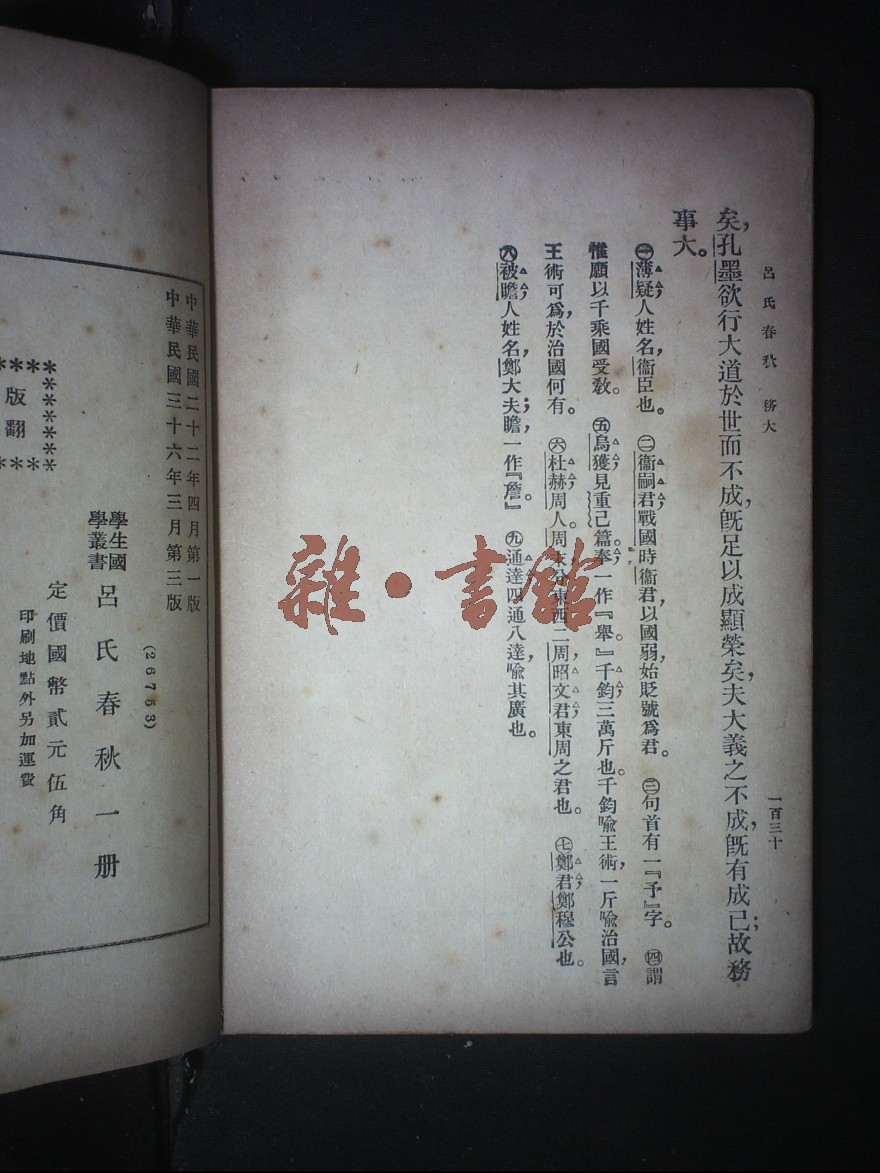 呂氏春秋 務大
一百三十
矣，孔墨欲行大道於世而不成，旣足以成顯榮矣，夫大義之不成，旣有成已；故務
事大。
㊀薄疑，人姓名，衞臣也。 ㊁衞嗣君戰國時衞君以國弱，始貶號爲君。 ㊂句首有一『予』字。 ㊃謂
惟願以千乘國受敎。 ㊄烏獲，見重己篇。奉，一作『舉』。千鈞，三萬斤也。千鈞喩王術，一斤喩治國，言
王術可爲，於治國何有。 ㊅杜赫，周人。周末分東西二周，昭文君，東周之君也。 ㊆鄭君，鄭穆公也。
㊇被瞻，人姓名，鄭大夫；瞻，一作『詹』。 ㊈通達，四通八達，喩其廣也。
雜·書館
中華民國二十二年四月第一版
中華民國三十六年三月第三版
(26753)
學生國
學叢書
呂氏春秋一册
定價國幣貳元伍角
印刷地點外另加運費
版翻